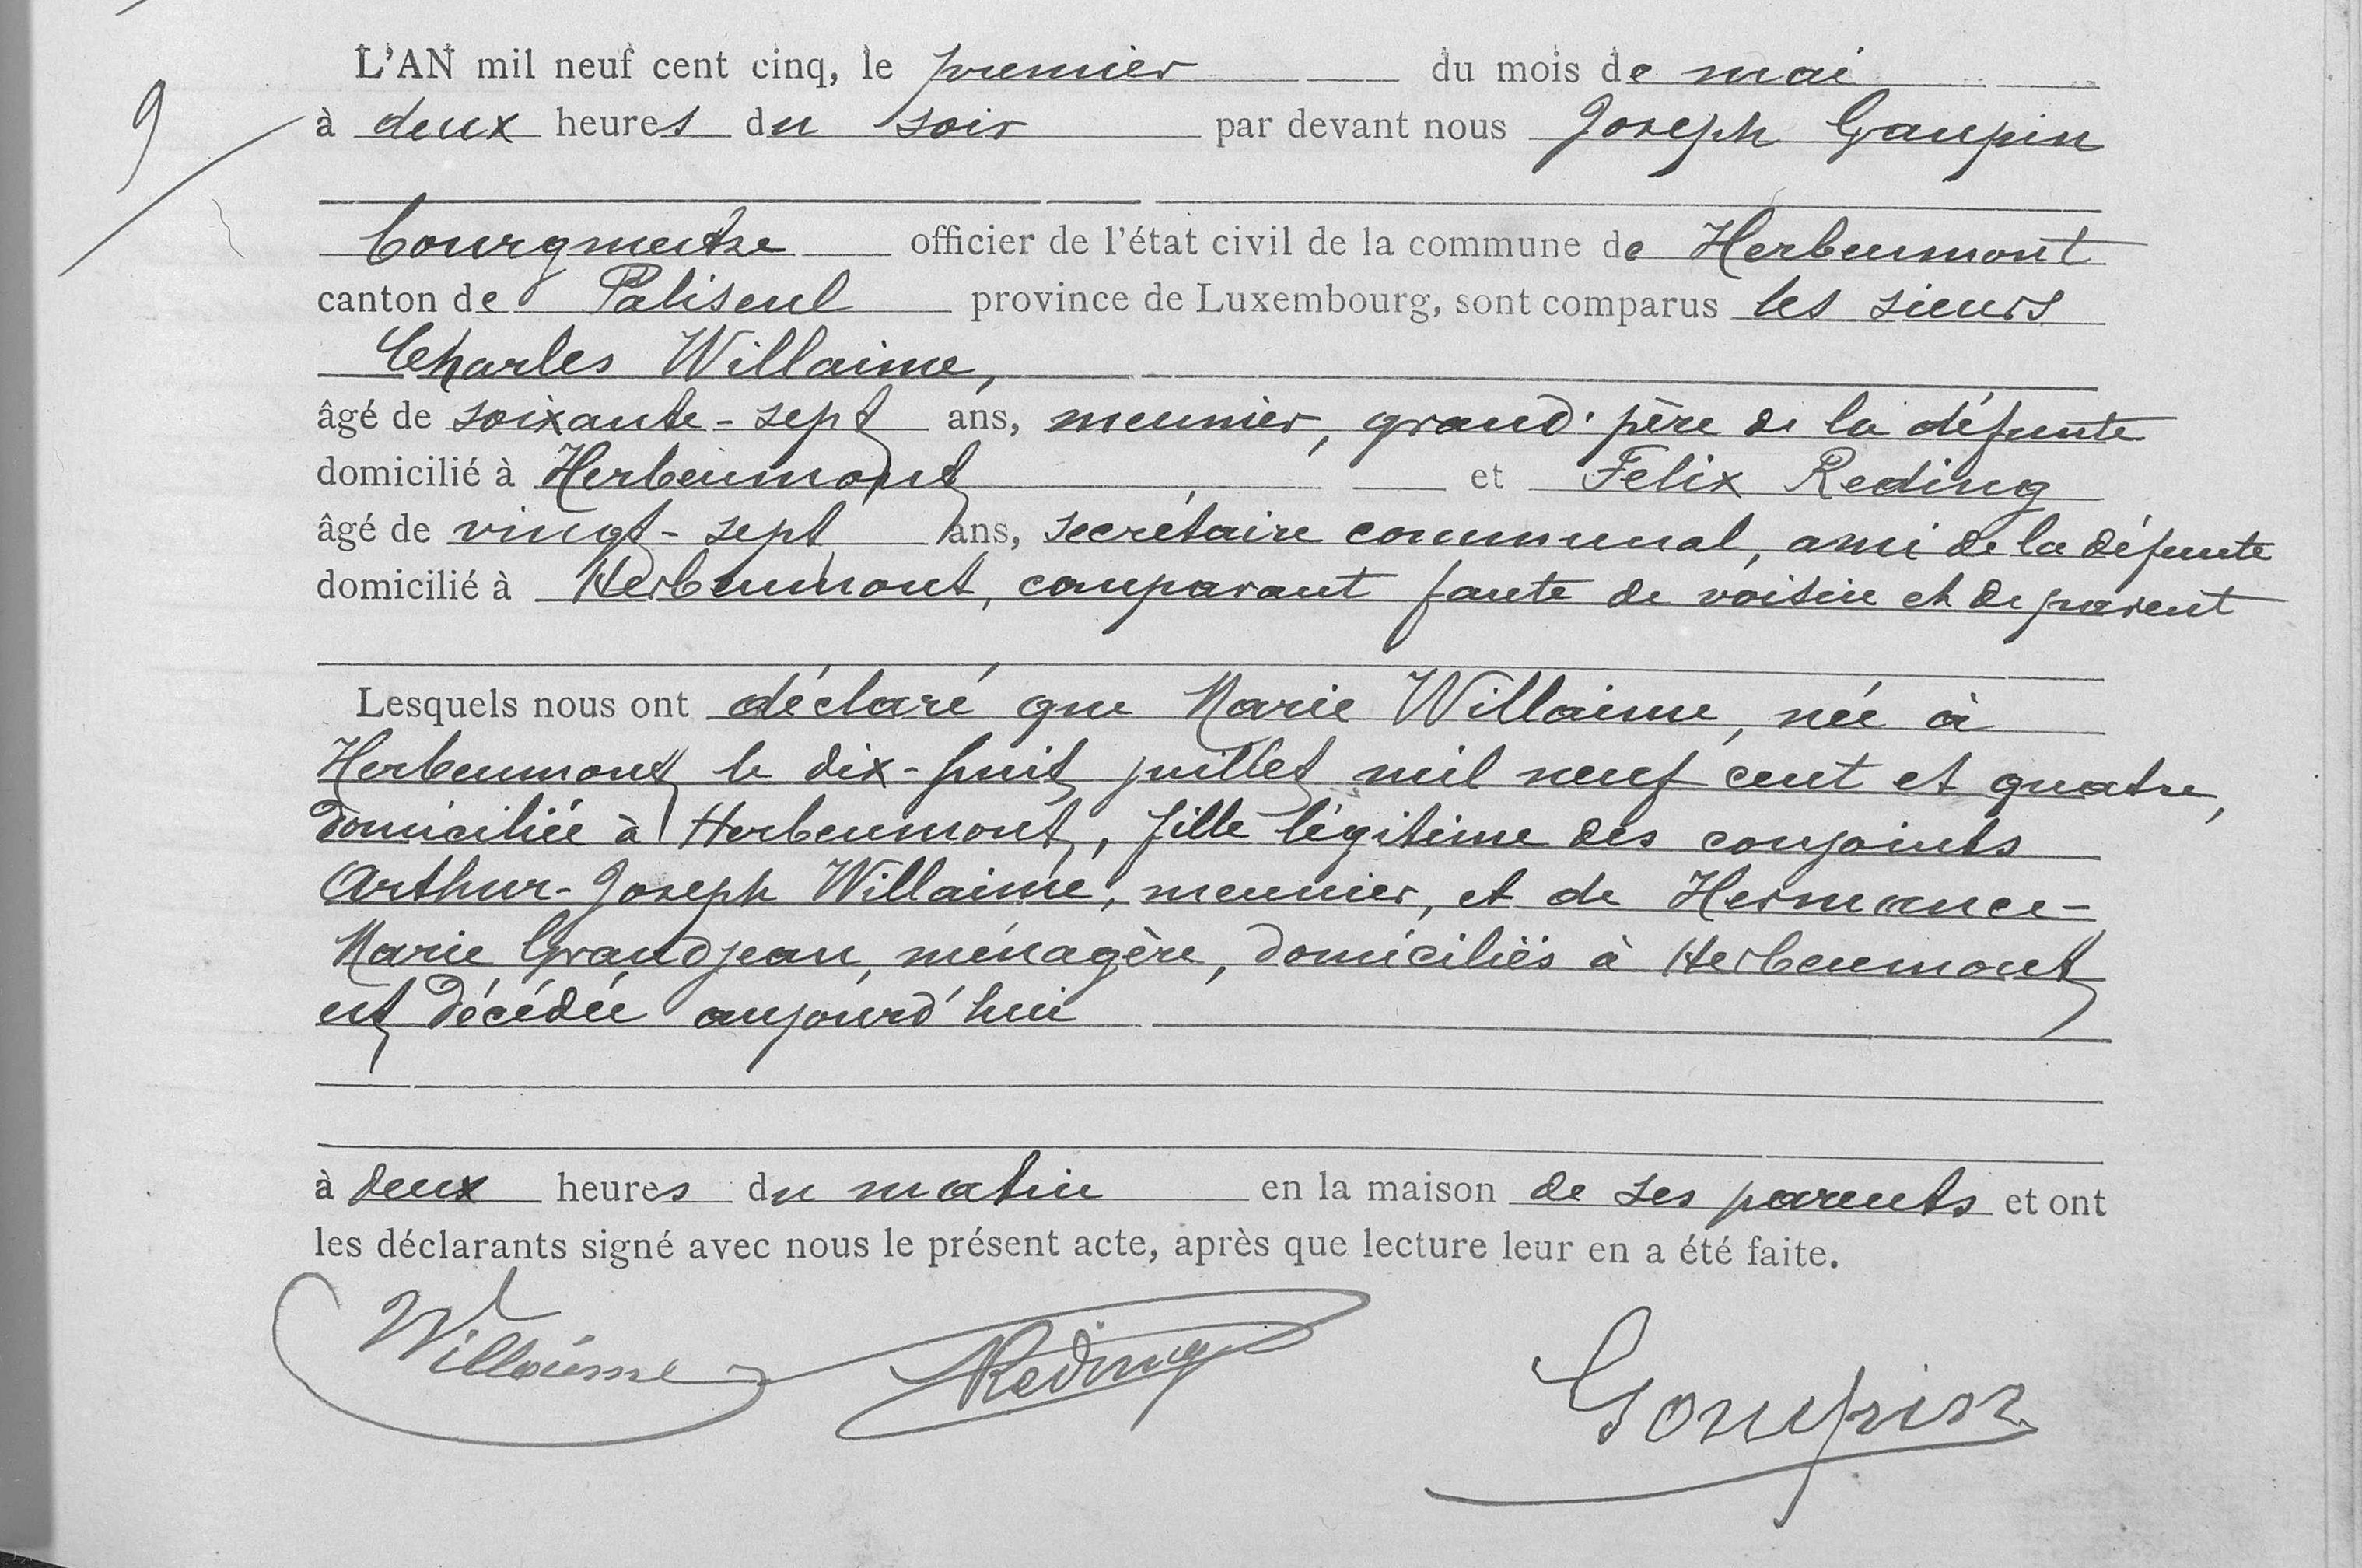 L'AN mil neuf cent cinq, le premier du mois de mai
9
à deux heures du soir par devant nous Joseph Goupin
bourgmestre officier de l'état civil de la commune de Herbeumont
canton de Paliseul province de Luxembourg, sont comparus les sieurs
Charles Willaime,
âgé de soixante-sept ans, meunier, grand-père de la défunte
domicilié à Herbeumont, et Felix Reding
âgé de vingt-sept ans, secrétaire communal, ami de la défunte
domicilié à Herbeumont, comparant faute de voisin et de parent
Lesquels nous ont déclaré que Marie Willaime, née à
Herbeumont le dix-huit juillet mil neuf cent et quatre,
domiciliée à Herbeumont, fille légitime des conjoints
Arthur-Joseph Willaime, meunier, et de Hermance-
Marie Grandjean, ménagère, domiciliés à Herbeumont
est décédée aujourd'hui
à deux heures du matin en la maison de ses parents et ont
les déclarants signé avec nous le présent acte, après que lecture leur en a été faite.
Willaime Reding Goupin